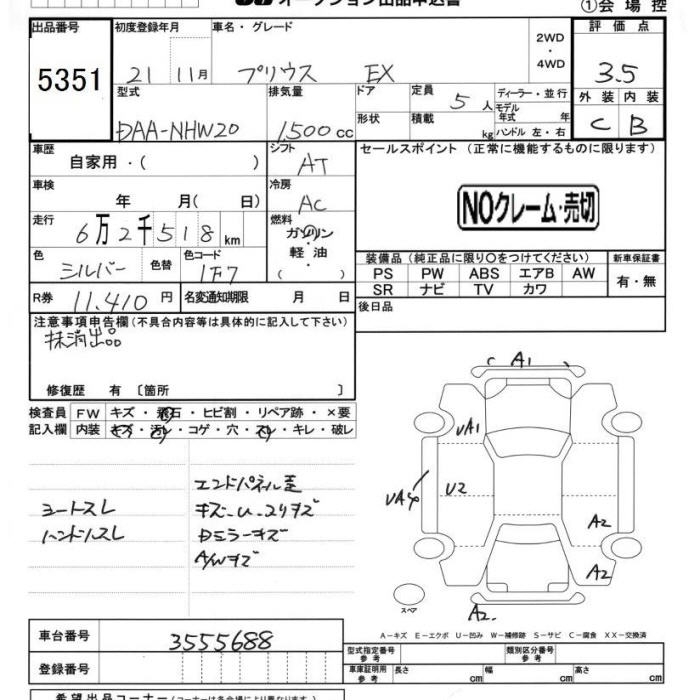 オークション出品申込書 ①会場控
出品番号 初度登録年月 車名・グレード 2WD・4WD 評価点
5351 21 11月 プリウス EX 3.5
型式 排気量 ドア 定員 5人 ディーラー・並行 外装 内装
DAA-NHW20 1500cc 形状 積載 kg モデル年式 年 ハンドル 左・右 C B
車歴 自家用・( ) シフト AT セールスポイント (正常に機能するものに限ります)
車検 年 月( 日) 冷房 AC
NOクレーム・売切
走行 6万2千518km 燃料 ガソリン・軽油・( )
色 シルバー 色替 色コード 1F7
装備品 (純正品に限り○をつけてください) 新車保証書
PS PW ABS エアB AW 有・無
SR ナビ TV カワ
R券 11,410円 名変通知期限 月 日 後日品
注意事項申告欄 (不具合内容等は具体的に記入して下さい)
抹消出品
修復歴 有 〔箇所 〕
検査員記入欄 FW キズ・飛石・ヒビ割・リペア跡・×要
内装 キズ・汚レ・コゲ・穴・スレ・キレ・破レ
A1
UA1
UA4 U2
A2
A2
スペア
A2
エンドパネル歪
シートスレ キズ・U・コリキズ
ハンドルスレ Dミラーキズ
A/Wキズ
A-キズ E-エクボ U-凹み W-補修跡 S-サビ C-腐食 XX-交換済
車台番号 3555688
型式指定番号 参考 類別区分番号 参考
登録番号
車庫証明用 参考 長さ cm 幅 cm 高さ cm
希望出品コーナー (コーナーは各会場により異なります)